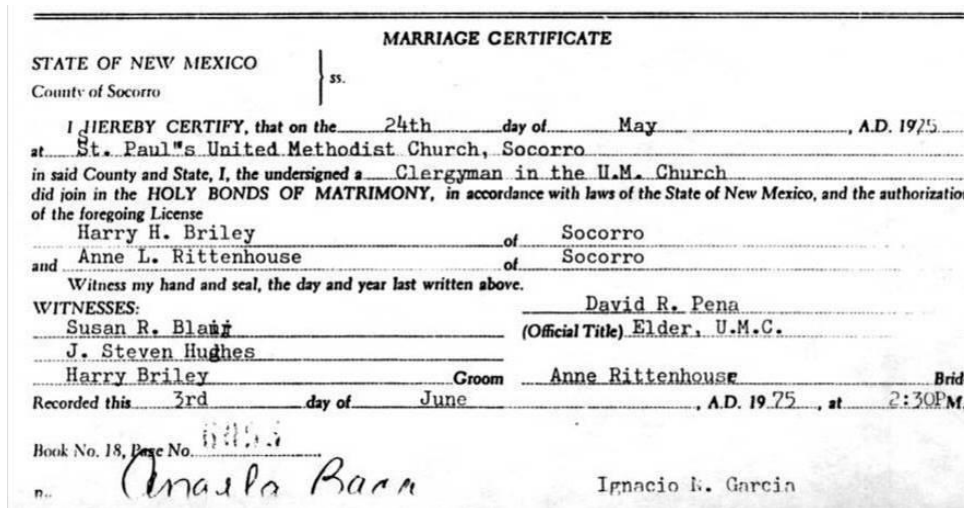 MARRIAGE CERTIFICATE
STATE OF NEW MEXICO
ss.
County of Socorro
I HEREBY CERTIFY, that on the 24th day of May, A.D. 1975
at St. Paul"s United Methodist Church, Socorro
in said County and State, I, the undersigned a Clergyman in the U.M. Church
did join in the HOLY BONDS OF MATRIMONY, in accordance with laws of the State of New Mexico, and the authorization
of the foregoing License
Harry H. Briley of Socorro
and Anne L. Rittenhouse of Socorro
Witness my hand and seal, the day and year last written above.
WITNESSES: David R. Pena
Susan R. Blair (Official Title) Elder, U.M.C.
J. Steven Hughes
Harry Briley Groom Anne Rittenhouse Brid
Recorded this 3rd day of June, A.D. 19 75, at 2:30P M.
Book No. 18, Page No.
Angela Ignacio Garcia